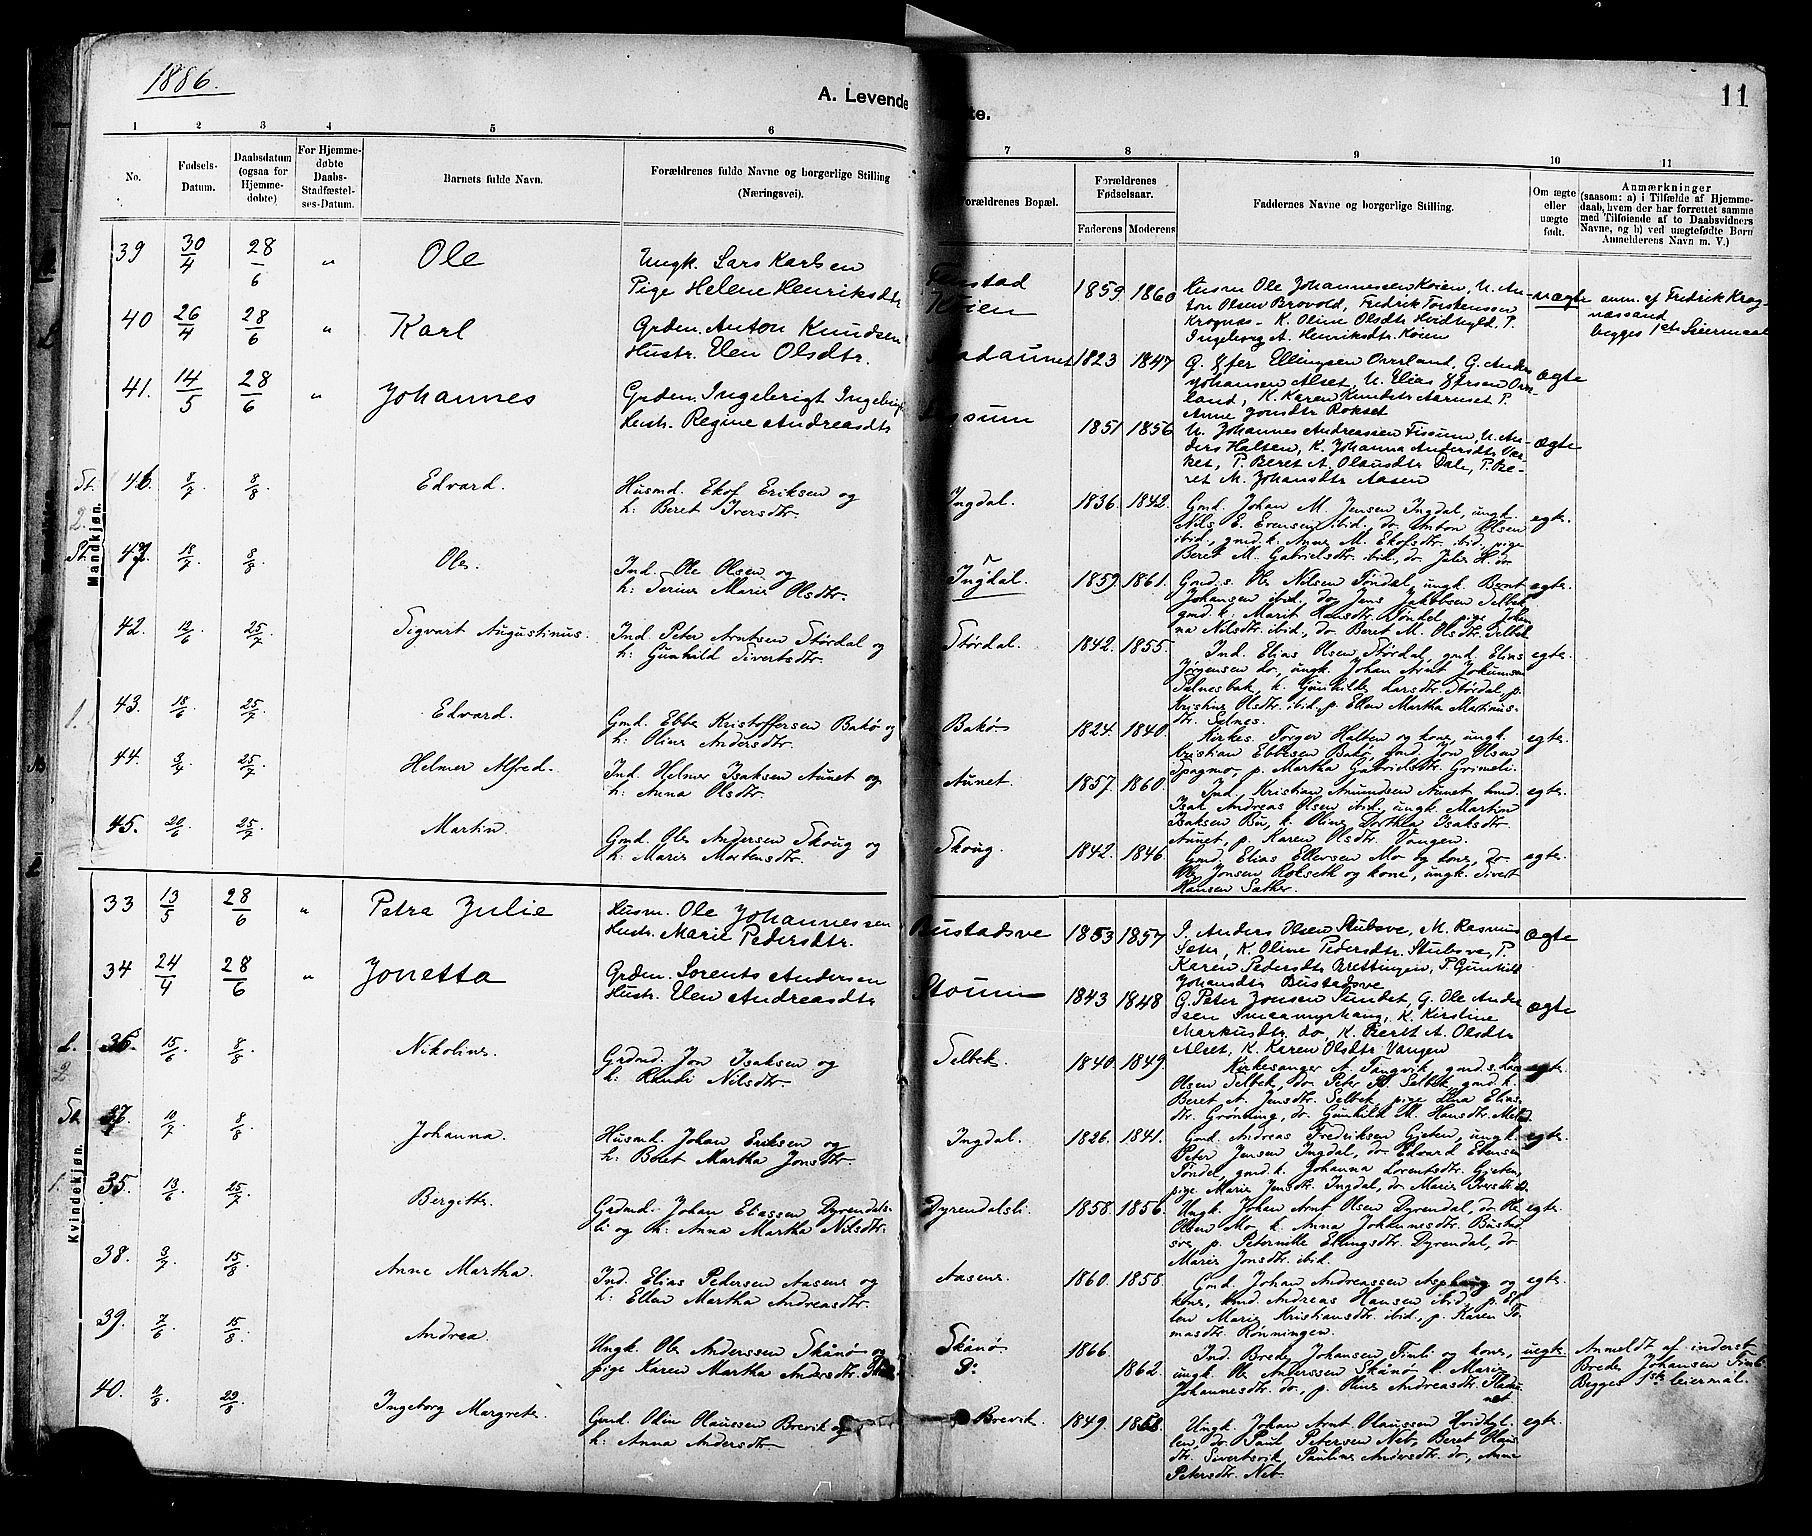 1886.
A. Levende
te.
11
1 2 3 4 5 6 7 8 9 10 11
No.
Fødsels-Datum.
Daabsdatum (ogsaa for Hjemmedøbte)
For Hjemmedøbte Daabs-Stadfæstelses-Datum.
Barnets fulde Navn.
Forældrenes fulde Navne og borgerlige Stilling (Næringsvei).
Forældrenes Bopæl.
Forældrenes Fødselsaar.
Faderens Moderens
Faddernes Navne og borgerlige Stilling.
Om ægte eller uægte født.
Anmærkninger
(saasom: a) i Tilfælde af Hjemmedaab, hvem der har forrettet samme med Tilføiende af to Daabsvidners Navne, og b) ved uægtefødte Børn Anmelderens Navn m. V.)
Mandkjøn.
39 30/4 28/6 " Ole
Ungk. Lars Karlsen
Pige Helene Henriksdtr
Køien
1859 1860
Husm Ole Johannesen Køien, U. An-
ton Olsen Brovold, Fredrik Torstensen
Kragnæs - K. Oline Olsdtr Hvidhyld. P.
Ingeborg A. Henriksdtr. Køien
uægte
anm. af Fredrik Krag-
næssand
begges 1ste Leiermaal
40 26/4 28/6 " Karl
Grdm. Anton Knudsen
Hustr. Elen Olsdtr.
1823 1847
Johansen Alset, U. Elias
land, K. Karen Knudsdtr Aarnset P.
Anne Jonsdtr Rokset
ægte
41. 14/5 28/6 " Johannes
Grdm. Ingebrigt Ingebrigts
Hustr. Regine Andreasdtr
1851 1856
U. Johannes Andreassen Fissum, U. An-
ders Halsen, K. Johanna Andersdtr
P. Beret A. Olausdtr Dale, P. Be-
ret M. Johansdtr Aasen
ægte
St. 46. 8/7 8/8 Edvard.
Husmd. Ekof Eriksen og
h: Beret Iversdtr.
Ingdal.
1836. 1842.
Gmd. Johan M. Jensen Ingdal, ungk.
Nils E. Evensen ibid. do Anton Olsen
ibid, gmd. k. Anne M. Ekofsdtr. ibid, pige
Beret M. Gabrielsdtr. ibid, do
egte.
2.
St. 47. 18/7 8/8 Ole.
Ind. Ole Olsen og
h: Serine Marie Olsdtr.
Ingdal.
1859. 1861.
Gmd. s. Ole Nilsen Tøndel, ungk. Bernt
Johansen ibid. do Jens Jakobsen Selbek,
gmd. k. Marit Hansdtr. Tøndel pige Johan-
na Nilsdtr. ibid, do Beret M. Olsdtr. Selbek
egte.
42. 12/6 25/7 Sigvart Augustinus.
Ind. Peter Arntsen Størdal og
h: Gunhild Sivertsdtr.
Størdal.
1842. 1855.
Ind. Elias Olsen Størdal, gmd. Elias
Jørgensen do, ungk. Johan Arnt Jokumsen
Selnesbak, k. Gunhilde Larsdtr. Størdal, p.
Kristine Olsdtr. ibid, p. Ellen Martha Martinus-
dtr. Selnes.
egte.
1. 43. 18/6 25/7 Edvard.
Gmd. Ebbe Kristoffersen Bakø og
h: Oline Andersdtr.
Bakø
1824. 1840.
Kirkes. Torger Halten og kone, ungk.
Kristian Ebbesen Bakø, gmd. Jon Olsen
Spagmo, p. Martha Gabrielsdtr. Grimeli.
egte.
44. 25/7 Helmer Alfred.
Ind. Helmer Isaksen Aunet og
h: Anna Olsdtr.
Aunet.
1857. 1860.
Ind. Kristian Amundsen Aunet hmd.
Isak Andreas Olsen ibid. ungk. Martin
Isaksen Bu, k. Oline Dorthea Isaksdtr.
Aunet, p. Karen Olsdtr. Vangen.
egte.
45. 20/6 25/7 Martin.
Gmd. Ole Andersen Skoug og
h: Marie Mortensdtr.
Skoug.
1842. 1846.
Gmd. Elias Ellevsen Mo og kone, do
Ole Jonsen Rokseth og kone, ungk. Sivert
Hansen Sæther.
egte.
Kvindekjøn.
33 13/5 28/6 " Petra Julie
Husm. Ole Johannessen
Hustr. Marie Pedersdtr.
Bustadsve
1853 1857
I. Anders Olsen Stubsve, M. Rasmus
Sæter, K. Oline Pedersdtr. Stubsve, P.
Karen Pedersdtr Vrettingen, P. Gunhild
Johansdtr Bustadsve
ægte
34 24/4 28/6 " Jonetta
Grdm. Lorents Andersen
Hustr. Elen Andreasdtr
1843 1848
G. Peter Jonsen Sundet, G. Ole Ander
sen Smeamyrhaug, K. Kirstine
Markusdtr. do, K. Beret A. Olsdtr
Alset, K. Karen Olsdtr. Vangen
ægte
L. 36. 15/6 8/8 Nikoline.
Grdmd. Jon Isaksen og
h: Randi Nilsdtr.
Selbek.
1840. 1849.
Kirkesanger A. Tangvik, gmd. s. Lars
Olsen Selbek, do Peter Selbek, gmd. k.
Beret A. Jensdtr. Selbek, pige Lina Elias-
dtr. Grønning, do Gunhild M. Hansdtr.
egte.
2.
St. 37. 10/7 8/8 Johanna.
Husmd. Johan Eriksen og
h: Beret Martha Jonsdtr.
Ingdal.
1826. 1841.
Gmd. Andreas Fredriksen Gjeten, ungk.
Peter Jensen Ingdal, do Edvard Edensen
Tøndel, gmd. k. Johanna Lorentsdtr. Gjeten,
pige Marie Jensdtr. Ingdal, do Marie Iversdtr do.
egte.
1. 35. 13/6 25/7 Bergitte.
Grdmd. Johan Eliassen Dyrendals-
li og h: Anna Martha Nilsdtr.
Dyrendalsli.
1858. 1856.
Ungk. Johan Arnt Olsen Dyrendal, do Ole
Olsen Mo, k. Anna Johannesdtr. Bustad-
sve, p. Peternille Ellingsdtr. Dyrendal, do
Marie Jonsdtr. ibid.
egte.
38. 3/7 15/8 Anne Martha.
Ind. Elias Pedersen Aasen og
h: Ellen Martha Andreasdtr.
Aasen.
1860. 1858.
Gmd. Johan Andreassen Asphaug og
kone, hmd. Andreas Hansen ibid, p. El-
len Marie Kristiansdtr. ibid, p. Karen To-
masdtr. Rønningen.
egte.
39. 7/6 15/8 Andrea.
Ungk. Ole Anderssen Skånø og
pige Karen Martha Andersdtr.
Skånø
Do
1866.
1862.
Ind. Brede Johansen Timli og kone,
ungk. Ole Anderssen Skånø, Marie
Johannesdtr. do, p. Oline Andreasdtr. Fladu-
net
uegte.
Anmeldt af inderst
Brede Johansen Timli
Begges 1ste leiermål.
40. 29/8 Ingeborg Margrete.
Gmd. Olin Olaussen Brevik og
h: Anna Andersdtr.
Brevik.
1849.
Ungk. Johan Arnt Olaussen Hvidhyl-
len, do Paul Petersen Neb, Beret Olaus-
dtr. Sivertsvik, Pauline Andersdtr. do, Anne
Petersdtr. Neb.
egte.